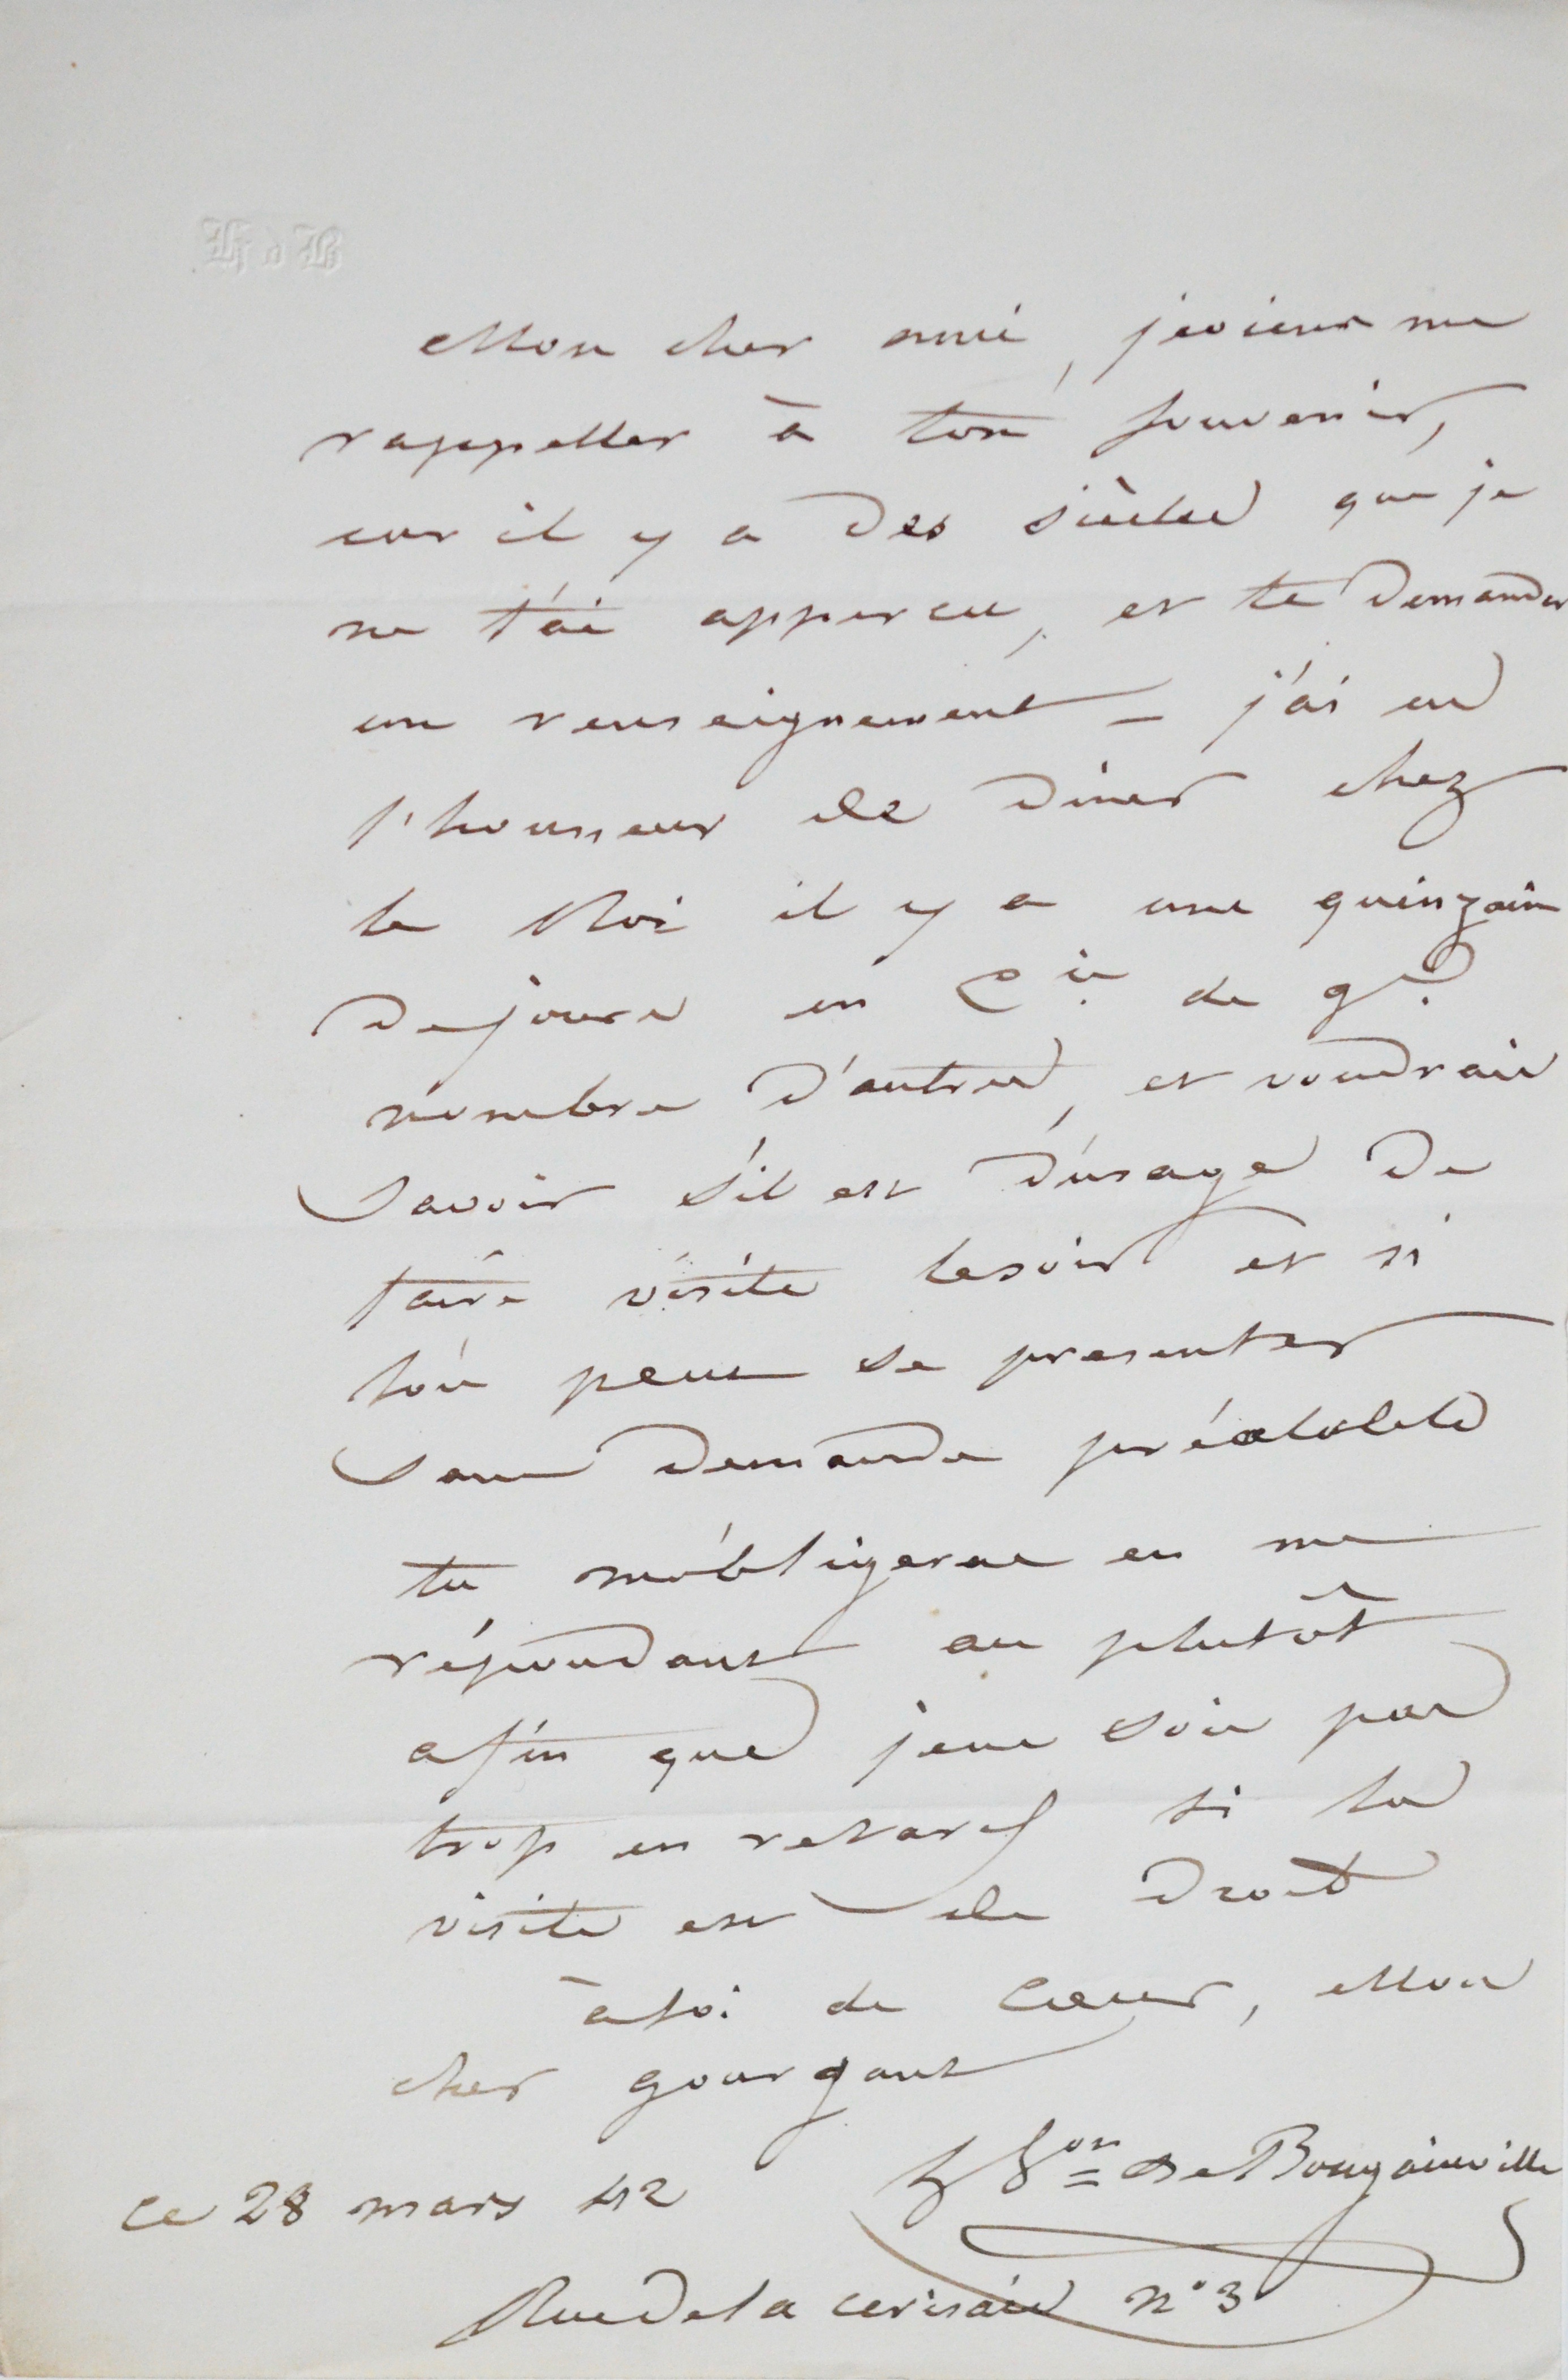 H d B
Mon cher ami, je viens me
rappeller à ton souvenir,
car il y a des siècles que je
ne t'ai apperçu, et te demander
un renseignement – j'ai eu
l'honneur de diner chez
le Roi il y a une quinzaine
de jours en Cie de gd
nombre d'autres, et voudrais
savoir s'il est d'usage de
faire visite le soir et si
l'on peut se presenter
sans demande préalable
tu m'obligeras en me
répondant au plutôt
afin que je ne sois pas
trop en retard si la
visite est de droit
à toi de Cœur, Mon
cher gourgaut
Bon de Bougainville
ce 28 mars 42
Rue de la cerisaie n° 3